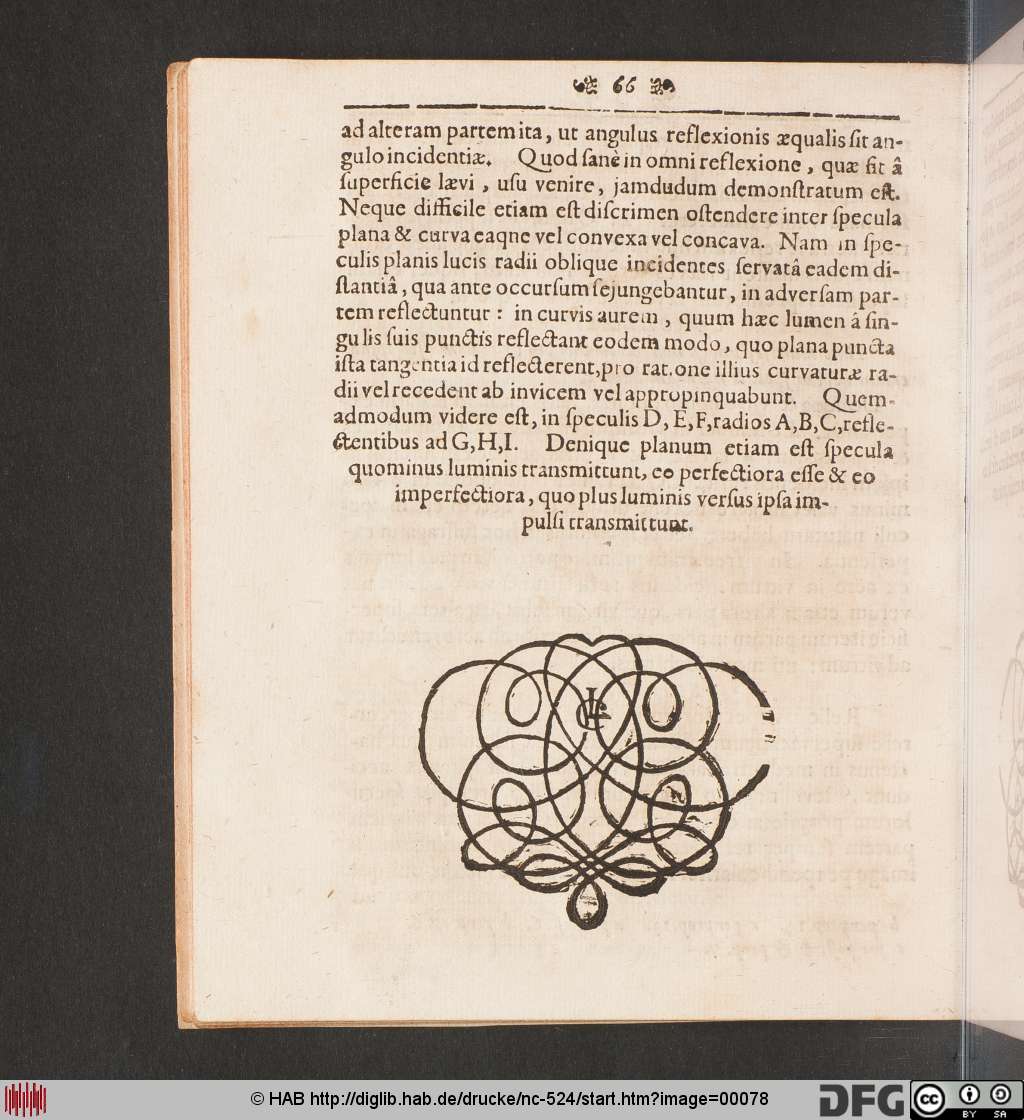 66
ad alteram partem ita, ut angulus reflexionis æqualis ſit an-
gulo incidentiæ. Quod ſanè in omni reflexione, quæ fit â
ſuperficie lævi, uſu venire, jamdudum demonſtratum eſt.
Neque difficile etiam eſt diſcrimen oſtendere inter ſpecula
plana & curva eaqne vel convexa vel concava. Nam in ſpe-
culis planis lucis radii oblique incidentes ſervatâ eadem di-
ſtantiâ, qua ante occurſum ſejungebantur, in adverſam par-
tem reflectuntur: in curvis aurem, quum hæc lumen â ſin-
gulis ſuis punctis reflectant eodem modo, quo plana puncta
iſta tangentia id reflecterent, pro rat.one illius curvaturæ ra-
dii vel recedent ab invicem vel appropinquabunt. Quem-
admodum videre eſt, in ſpeculis D, E, F, radios A, B, C, refle-
ctentibus ad G, H, I. Denique planum etiam eſt ſpecula
quominus luminis transmittunt, eo perfectiora eſſe & eo
imperfectiora, quo plus luminis verſus ipſa im-
pulſi transmittunt.
© HAB http://diglib.hab.de/drucke/nc-524/start.htm?image=00078
DFG
cc
BY SA